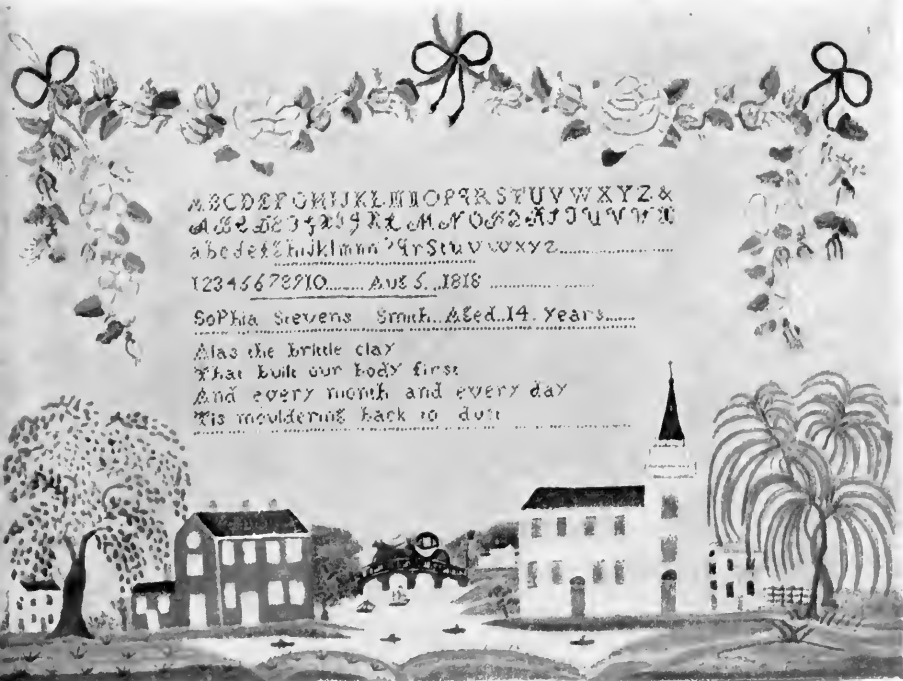 ABCDEFGHIJKLMNOPQRSTUVWXYZ&
ABCDEFGHIJKLMNOPQRSTUVWX
abcdefghijklmnopqrstuvwxyz
12345678910 Aug 5 1818
Sophia Stevens Smith Aged 14 years
Alas the brittle clay
That built our body first
And every month and every day
Tis mouldering back to dust